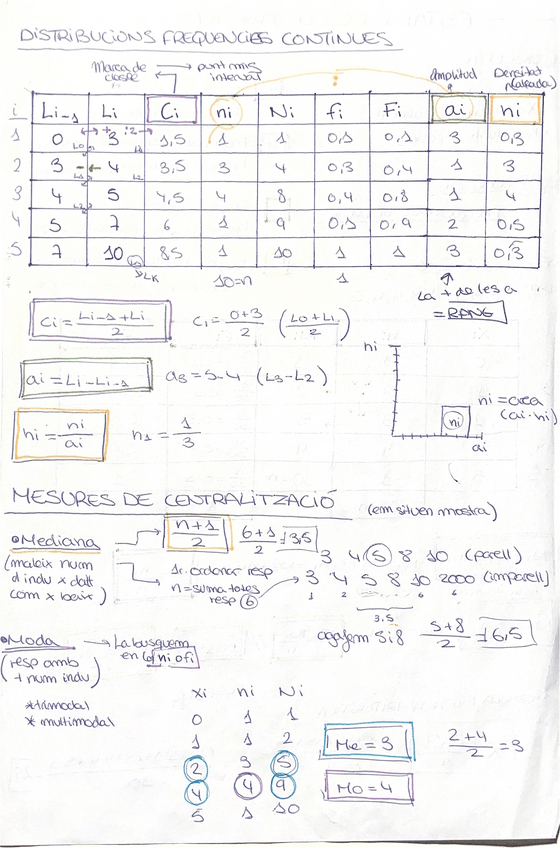 DISTRIBUCIONS FREQUENCIES CONTINUES
Marca de classe → punt mig interval
:
Amplitud
Densitat
i Li-1 Li Ci ni Ni fi Fi ai hi
1 0 3 1,5 1 1 0,1 0,1 3 0,3
2 3 4 3,5 3 4 0,3 0,4 1 3
3 4 5 4,5 4 8 0,4 0,8 1 4
4 5 7 6 1 9 0,1 0,9 2 0,5
5 7 10 8,5 1 10 1 1 3 0,3
LK
10=n 1
La + de les a
= RANG
Ci = Li-1 + Li / 2 C1 = 0+3 / 2 (L0 + L1 / 2)
ai = Li - Li-1 a3 = 5-4 (L3-L2)
hi = ni / ai h1 = 1 / 3
hi
ni
ai
ni = area
(ai·hi)
MESURES DE CENTRALITZACIÓ (em situen mostra)
• Mediana → n+1 / 2 6+1 / 2 = 3,5
(mateix num
d indu x dalt
com x baix)
1r. ordenar resp
n = suma totes
resp 6
3 4 5 8 10 (parell)
3 4 5 8 10 2000 (imparell)
1 2 6 6
3,5
agafem 5i8 5+8 / 2 = 6,5
• Moda → La busquem
en la ni o fi
(resp amb
+ num indu)
* trimodal
* multimodal
xi ni Ni
0 1 1
1 1 2
2 3 5
4 4 9
5 1 10
Me = 3 2+4 / 2 = 3
Mo = 4